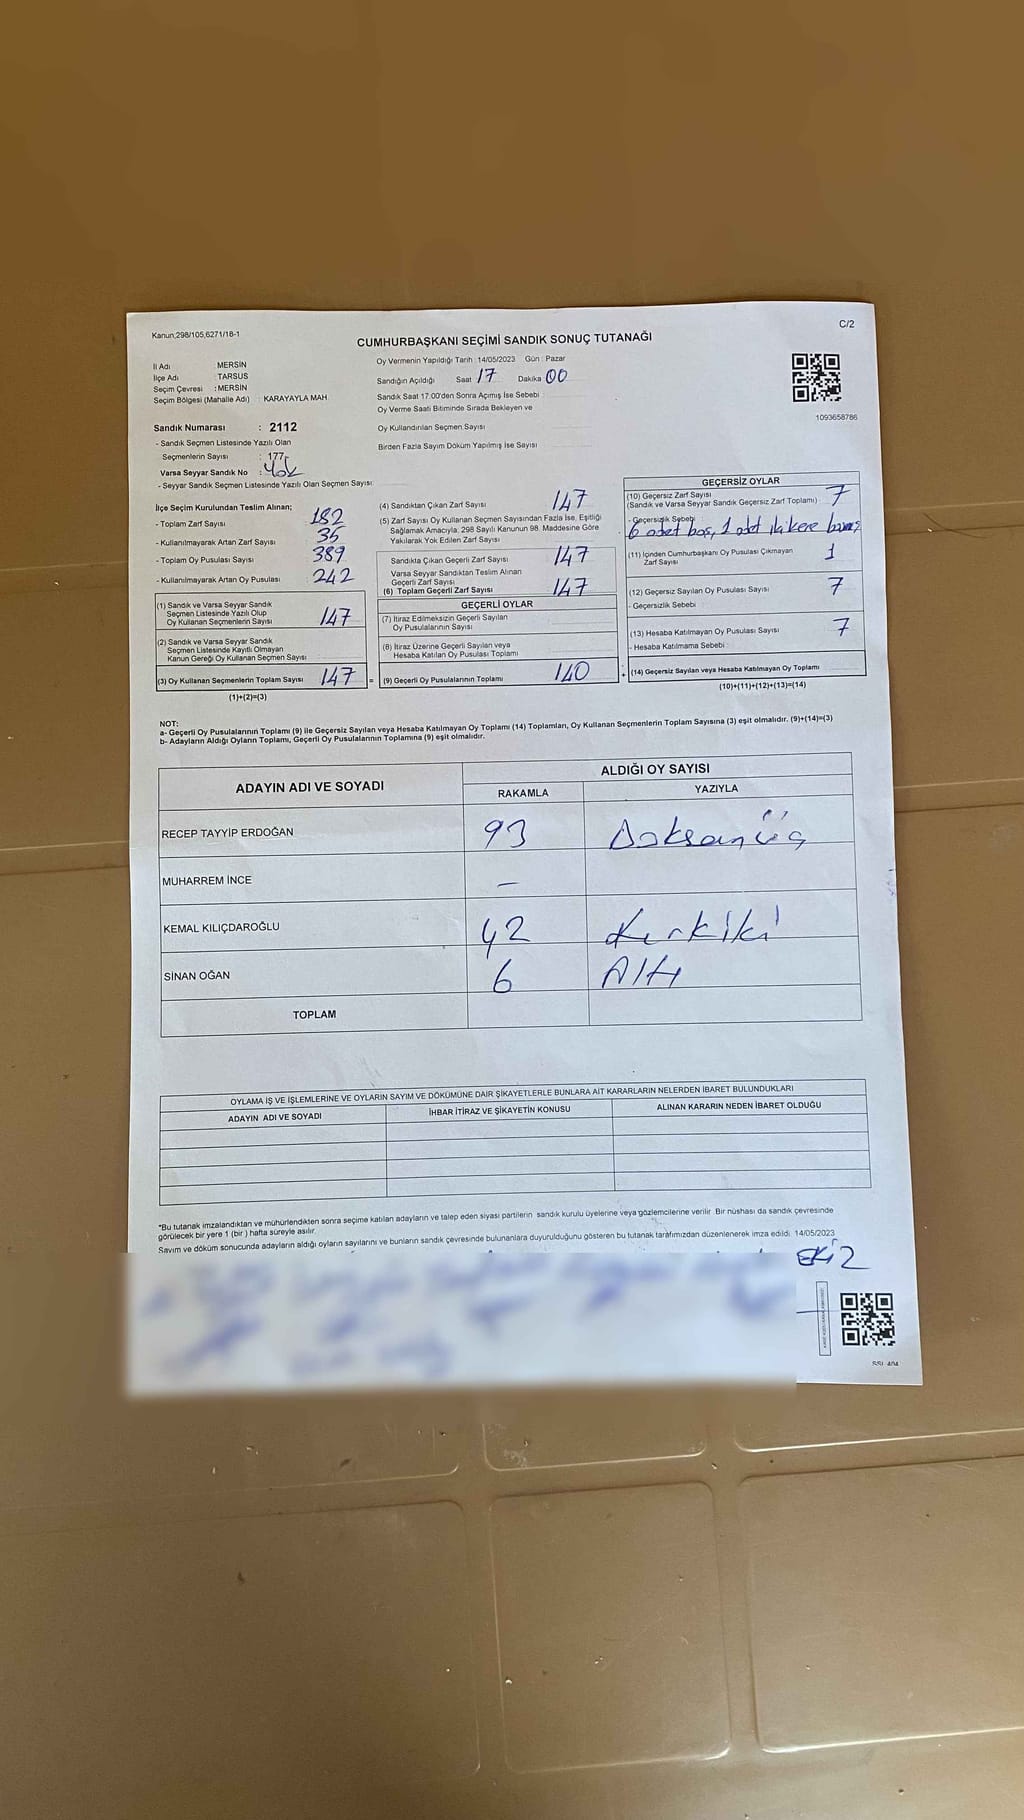 Kanun;298/105,6271/18-1
C/2
CUMHURBAŞKANI SEÇİMİ SANDIK SONUÇ TUTANAĞI
İl Adı : MERSİN
İlçe Adı : TARSUS
Seçim Çevresi : MERSİN
Seçim Bölgesi (Mahalle Adı) : KARAYAYLA MAH.
Oy Vermenin Yapıldığı Tarih : 14/05/2023 Gün : Pazar
Sandığın Açıldığı Saat 17 Dakika 00
Sandık Saat 17:00'den Sonra Açımış İse Sebebi :
Oy Verme Saati Bitiminde Sırada Bekleyen ve
Oy Kullandırılan Seçmen Sayısı
Birden Fazla Sayım Döküm Yapılmış İse Sayısı
1093658786
Sandık Numarası : 2112
- Sandık Seçmen Listesinde Yazılı Olan
Seçmenlerin Sayısı : 177
Varsa Seyyar Sandık No : Yok
- Seyyar Sandık Seçmen Listesinde Yazılı Olan Seçmen Sayısı:
İlçe Seçim Kurulundan Teslim Alınan;
- Toplam Zarf Sayısı 182
- Kullanılmayarak Artan Zarf Sayısı 35
- Toplam Oy Pusulası Sayısı 389
- Kullanılmayarak Artan Oy Pusulası 242
(1) Sandık ve Varsa Seyyar Sandık
Seçmen Listesinde Yazılı Olup
Oy Kullanan Seçmenlerin Sayısı 147
(2) Sandık ve Varsa Seyyar Sandık
Seçmen Listesinde Kayıtlı Olmayan
Kanun Gereği Oy Kullanan Seçmen Sayısı
(3) Oy Kullanan Seçmenlerin Toplam Sayısı 147 =
(1)+(2)=(3)
(4) Sandıktan Çıkan Zarf Sayısı 147
(5) Zarf Sayısı Oy Kullanan Seçmen Sayısından Fazla İse, Eşitliği
Sağlamak Amacıyla, 298 Sayılı Kanunun 98. Maddesine Göre
Yakılarak Yok Edilen Zarf Sayısı
Sandıkta Çıkan Geçerli Zarf Sayısı 147
Varsa Seyyar Sandıktan Teslim Alınan
Geçerli Zarf Sayısı
(6) Toplam Geçerli Zarf Sayısı 147
GEÇERLİ OYLAR
(7) İtiraz Edilmeksizin Geçerli Sayılan
Oy Pusulalarının Sayısı
(8) İtiraz Üzerine Geçerli Sayılan veya
Hesaba Katılan Oy Pusulası Toplamı
(9) Geçerli Oy Pusulalarının Toplamı 140
GEÇERSİZ OYLAR
(10) Geçersiz Zarf Sayısı
(Sandık ve Varsa Seyyar Sandık Geçersiz Zarf Toplamı) 7
- Geçersizlik Sebebi
6 adet boş, 1 adet iki kere
(11) İçinden Cumhurbaşkanı Oy Pusulası Çıkmayan
Zarf Sayısı 1
(12) Geçersiz Sayılan Oy Pusulası Sayısı 7
- Geçersizlik Sebebi
(13) Hesaba Katılmayan Oy Pusulası Sayısı 7
- Hesaba Katılmama Sebebi :
(14) Geçersiz Sayılan veya Hesaba Katılmayan Oy Toplamı
(10)+(11)+(12)+(13)=(14)
NOT:
a- Geçerli Oy Pusulalarının Toplamı (9) ile Geçersiz Sayılan veya Hesaba Katılmayan Oy Toplamı (14) Toplamları, Oy Kullanan Seçmenlerin Toplam Sayısına (3) eşit olmalıdır. (9)+(14)=(3)
b- Adayların Aldığı Oyların Toplamı, Geçerli Oy Pusulalarının Toplamına (9) eşit olmalıdır.
ADAYIN ADI VE SOYADI
ALDIĞI OY SAYISI
RAKAMLA YAZIYLA
RECEP TAYYİP ERDOĞAN 93 Doksanüç
MUHARREM İNCE –
KEMAL KILIÇDAROĞLU 42 Kırkiki
SİNAN OĞAN 6 Altı
TOPLAM
OYLAMA İŞ VE İŞLEMLERİNE VE OYLARIN SAYIM VE DÖKÜMÜNE DAİR ŞİKAYETLERLE BUNLARA AİT KARARLARIN NELERDEN İBARET BULUNDUKLARI
ADAYIN ADI VE SOYADI İHBAR İTİRAZ VE ŞİKAYETİN KONUSU ALINAN KARARIN NEDEN İBARET OLDUĞU
*Bu tutanak imzalandıktan ve mühürlendikten sonra seçime katılan adayların ve talep eden siyasi partilerin sandık kurulu üyelerine veya gözlemcilerine verilir. Bir nüshası da sandık çevresinde
görülecek bir yere 1 (bir ) hafta süreyle asılır.
Sayım ve döküm sonucunda adayların aldığı oyların sayılarını ve bunların sandık çevresinde bulunanlara duyurulduğunu gösteren bu tutanak tarafımızdan düzenlenerek imza edildi. 14/05/2023
EKİ 2